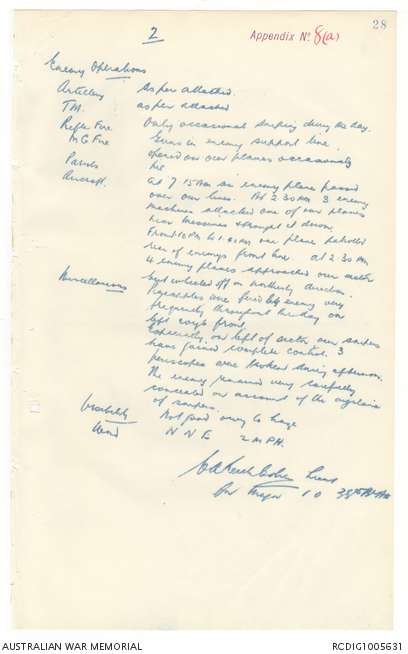 28
2
Appendix No 8(a)
Enemy Operations
Artillery As per attached.
T.M. as per attached
Rifle Fire Only occasional sniping during the day.
M G Fire Guns in enemy support line
opened on our planes occasionally
Patrols Nil
Aircraft. At 7.15 AM an enemy plane passed
over our lines. At 2.30 AM 3 enemy
machines attacked one of our planes
near Messines & brought it down.
From 12 PM to 1. AM our plane patrolled
rear of enemys front line. at 2.30 AM
4 enemy planes approached our sector
but wheeled off in northerly direction.
Miscellaneous were fired by enemy very
frequently throughout the day on
left coys front.
Especially on left of sector our snipers
have gained complete control. 3
periscopes were broken during afternoon.
The enemy remained very carefully
concealed on account of the vigilance
of snipers.
Visibility Not good owing to haze
Wind N N E 2 MPH.
Lieut
for Major I O 38th
AUSTRALIAN WAR MEMORIAL
RCDIG1005631